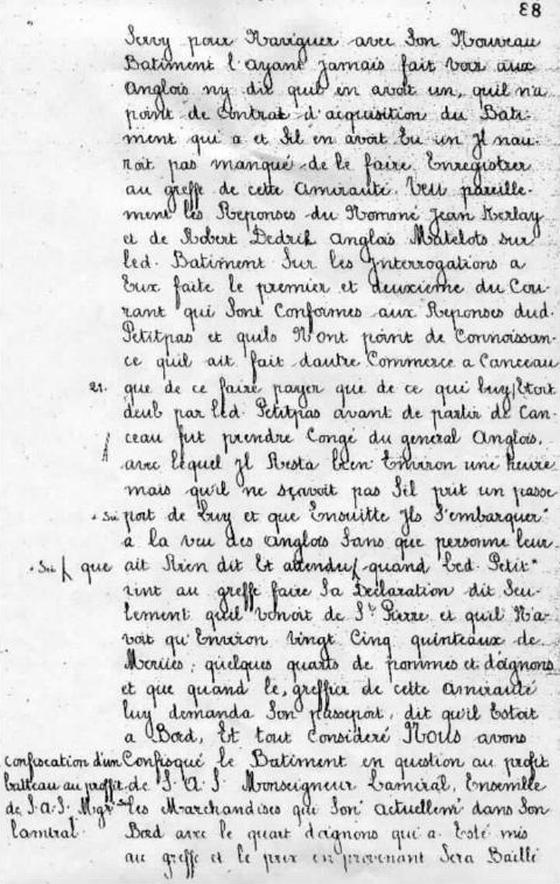 88
Servy pour Naviguer avec Son Nouveau
Batiment l'ayant Jamais fait Voir aux
Anglois ny dit quil en avoit un, quil n'a
point de Contrat d'acquisition du Bati-
ment qui a et Sil en avoit Eu un Jl nau-
roit pas manqué de le faire Enregistrer
au greffe de cette Amirauté. Veu pareille-
ment les Reponses du Nommé Jean Kerlay
et de Robert Dedrik Anglois Matelots sur
led. Batiment Sur les Jnterrogations a
Eux faite le premier et deuxieme du Cou-
rant qui Sont Conformes aux Reponses dud.
Petitpas et quils N'ont point de Connoissan-
ce quil ait fait dautre Commerce a Canceau
21. que de ce faire payer que de ce qui luy Etoit
deub par led. Petitpas avant de partir de Can-
ceau fut prendre Congé du general Anglois,
avec lequel Jl Resta bien Environ une heure
mais qu'il ne sçavoit pas Sil prit un passe
port de Luy et que Ensuitte Jls S'embarquer
a la veu des Anglois Sans que personne leur
que ait Rien dit Et attendu quand led. Petit
vint au greffe faire Sa Declaration dit Seu-
lement quil venoit de St. Pierre et quil N'a-
voit qu'Environ Vingt Cinq quinteaux de
Morües, quelques quarts de pommes et doignons
et que quand le greffier de cette Amirauté
luy demanda Son passeport, dit qu'il Estoit
a Bord, Et tout Consideré Nous avons
confiscation d'un Confisqué le Batiment en question au profit
batteau au proffit de S. A. S Monseigneur Lamiral, Ensemble
de S. A. S. Mgr les Marchandises qui Son Actuellemt dans Son
lamiral Bord avec le quart doignons qui a Esté mis
au greffe et le prix en provenant Sera Baillé